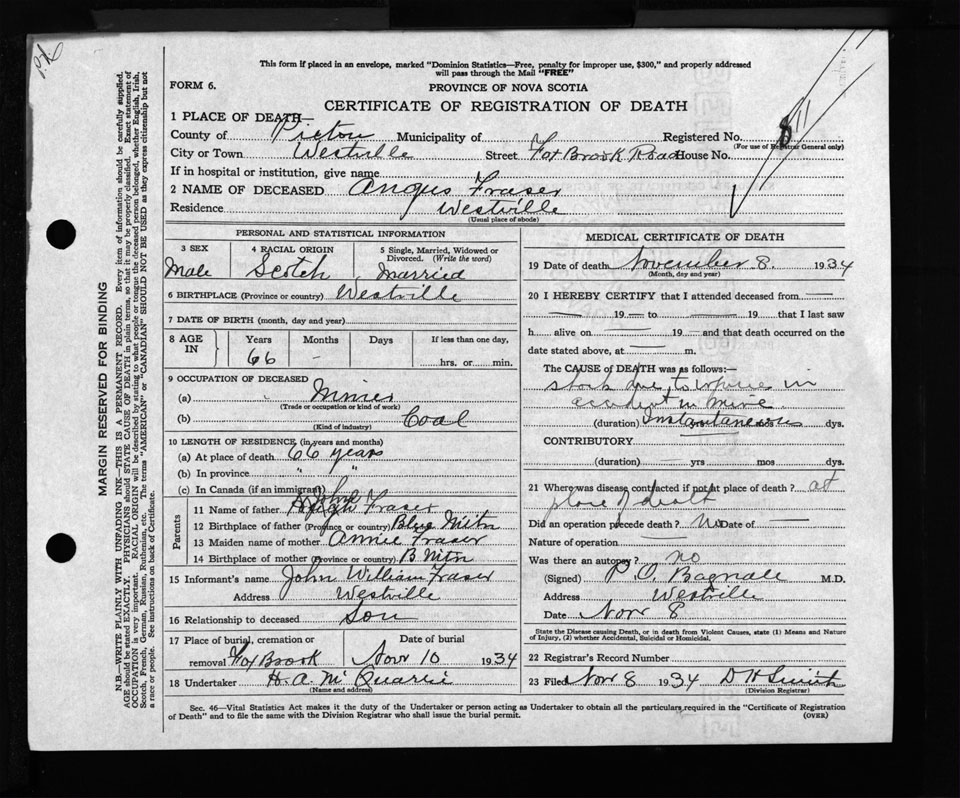 This form if placed in an envelope, marked "Dominion Statistics—Free, penalty for improper use, $300," and properly addressed
will pass through the Mail "FREE"
FORM 6.
PROVINCE OF NOVA SCOTIA
CERTIFICATE OF REGISTRATION OF DEATH
1 PLACE OF DEATH—
County of Pictou Municipality of Registered No.
(For use of Registrar General only)
City or Town Westville Street Fox Brook Road House No.
If in hospital or institution, give name
2 NAME OF DECEASED Angus Fraser
Residence Westville
(Usual place of abode)
PERSONAL AND STATISTICAL INFORMATION
3 SEX 4 RACIAL ORIGIN 5 Single, Married, Widowed or
Divorced. (Write the word)
Male Scotch Married
6 BIRTHPLACE (Province or country) Westville
7 DATE OF BIRTH (month, day and year)
8 AGE IN Years Months Days If less than one day,
66 - hrs. or min.
9 OCCUPATION OF DECEASED
(a) Miner
(Trade or occupation or kind of work)
(b) Coal
(Kind of industry)
10 LENGTH OF RESIDENCE (in years and months)
(a) At place of death 66 years
(b) In province " "
(c) In Canada (if an immigrant)
Parents
11 Name of father John Fraser
12 Birthplace of father (Province or country) Blue Mtn
13 Maiden name of mother Annie Fraser
14 Birthplace of mother (Province or country) B Mtn
15 Informant's name John William Fraser
Address Westville
16 Relationship to deceased Son
17 Place of burial, cremation or Date of burial
removal Fox Brook Nov 10 1934
18 Undertaker H. A. McQuarrie
(Name and address)
MEDICAL CERTIFICATE OF DEATH
19 Date of death November 8. 1934
(Month, day and year)
20 I HEREBY CERTIFY that I attended deceased from —
— 19 — to — 19 that I last saw
h alive on — 19 — and that death occurred on the
date stated above, at — m.
The CAUSE of DEATH was as follows:—
shock due to injuries in
accident in mine
(duration) Instantaneous yrs mos dys.
CONTRIBUTORY
(duration) — yrs mos dys.
21 Where was disease contracted if not at place of death? at
place of death
Did an operation precede death? No Date of —
Nature of operation —
Was there an autopsy? no
(Signed) P. O. Bagnall M.D.
Address Westville
Date Nov 8
State the Disease causing Death, or in death from Violent Causes, state (1) Means and Nature
of Injury, (2) whether Accidental, Suicidal or Homicidal.
22 Registrar's Record Number
23 Filed Nov 8 1934 D W Smith
(Division Registrar)
Sec. 46—Vital Statistics Act makes it the duty of the Undertaker or person acting as Undertaker to obtain all the particulars required in the "Certificate of Registration
of Death" and to file the same with the Division Registrar who shall issue the burial permit. (OVER)
MARGIN RESERVED FOR BINDING
N.B.—WRITE PLAINLY WITH UNFADING INK—THIS IS A PERMANENT RECORD. Every item of information should be carefully supplied.
AGE should be stated EXACTLY. PHYSICIANS should STATE CAUSE OF DEATH in plain terms, so that it may be properly classified. Exact statement of
OCCUPATION is very important. RACIAL ORIGIN will be described by stating to what people or tongue the deceased person belonged, whether English, Irish,
Scotch, French, German, Russian, Ruthenian, etc. The terms "AMERICAN" or "CANADIAN" SHOULD NOT BE USED as they express citizenship but not
a race or people. See instructions on back of Certificate.